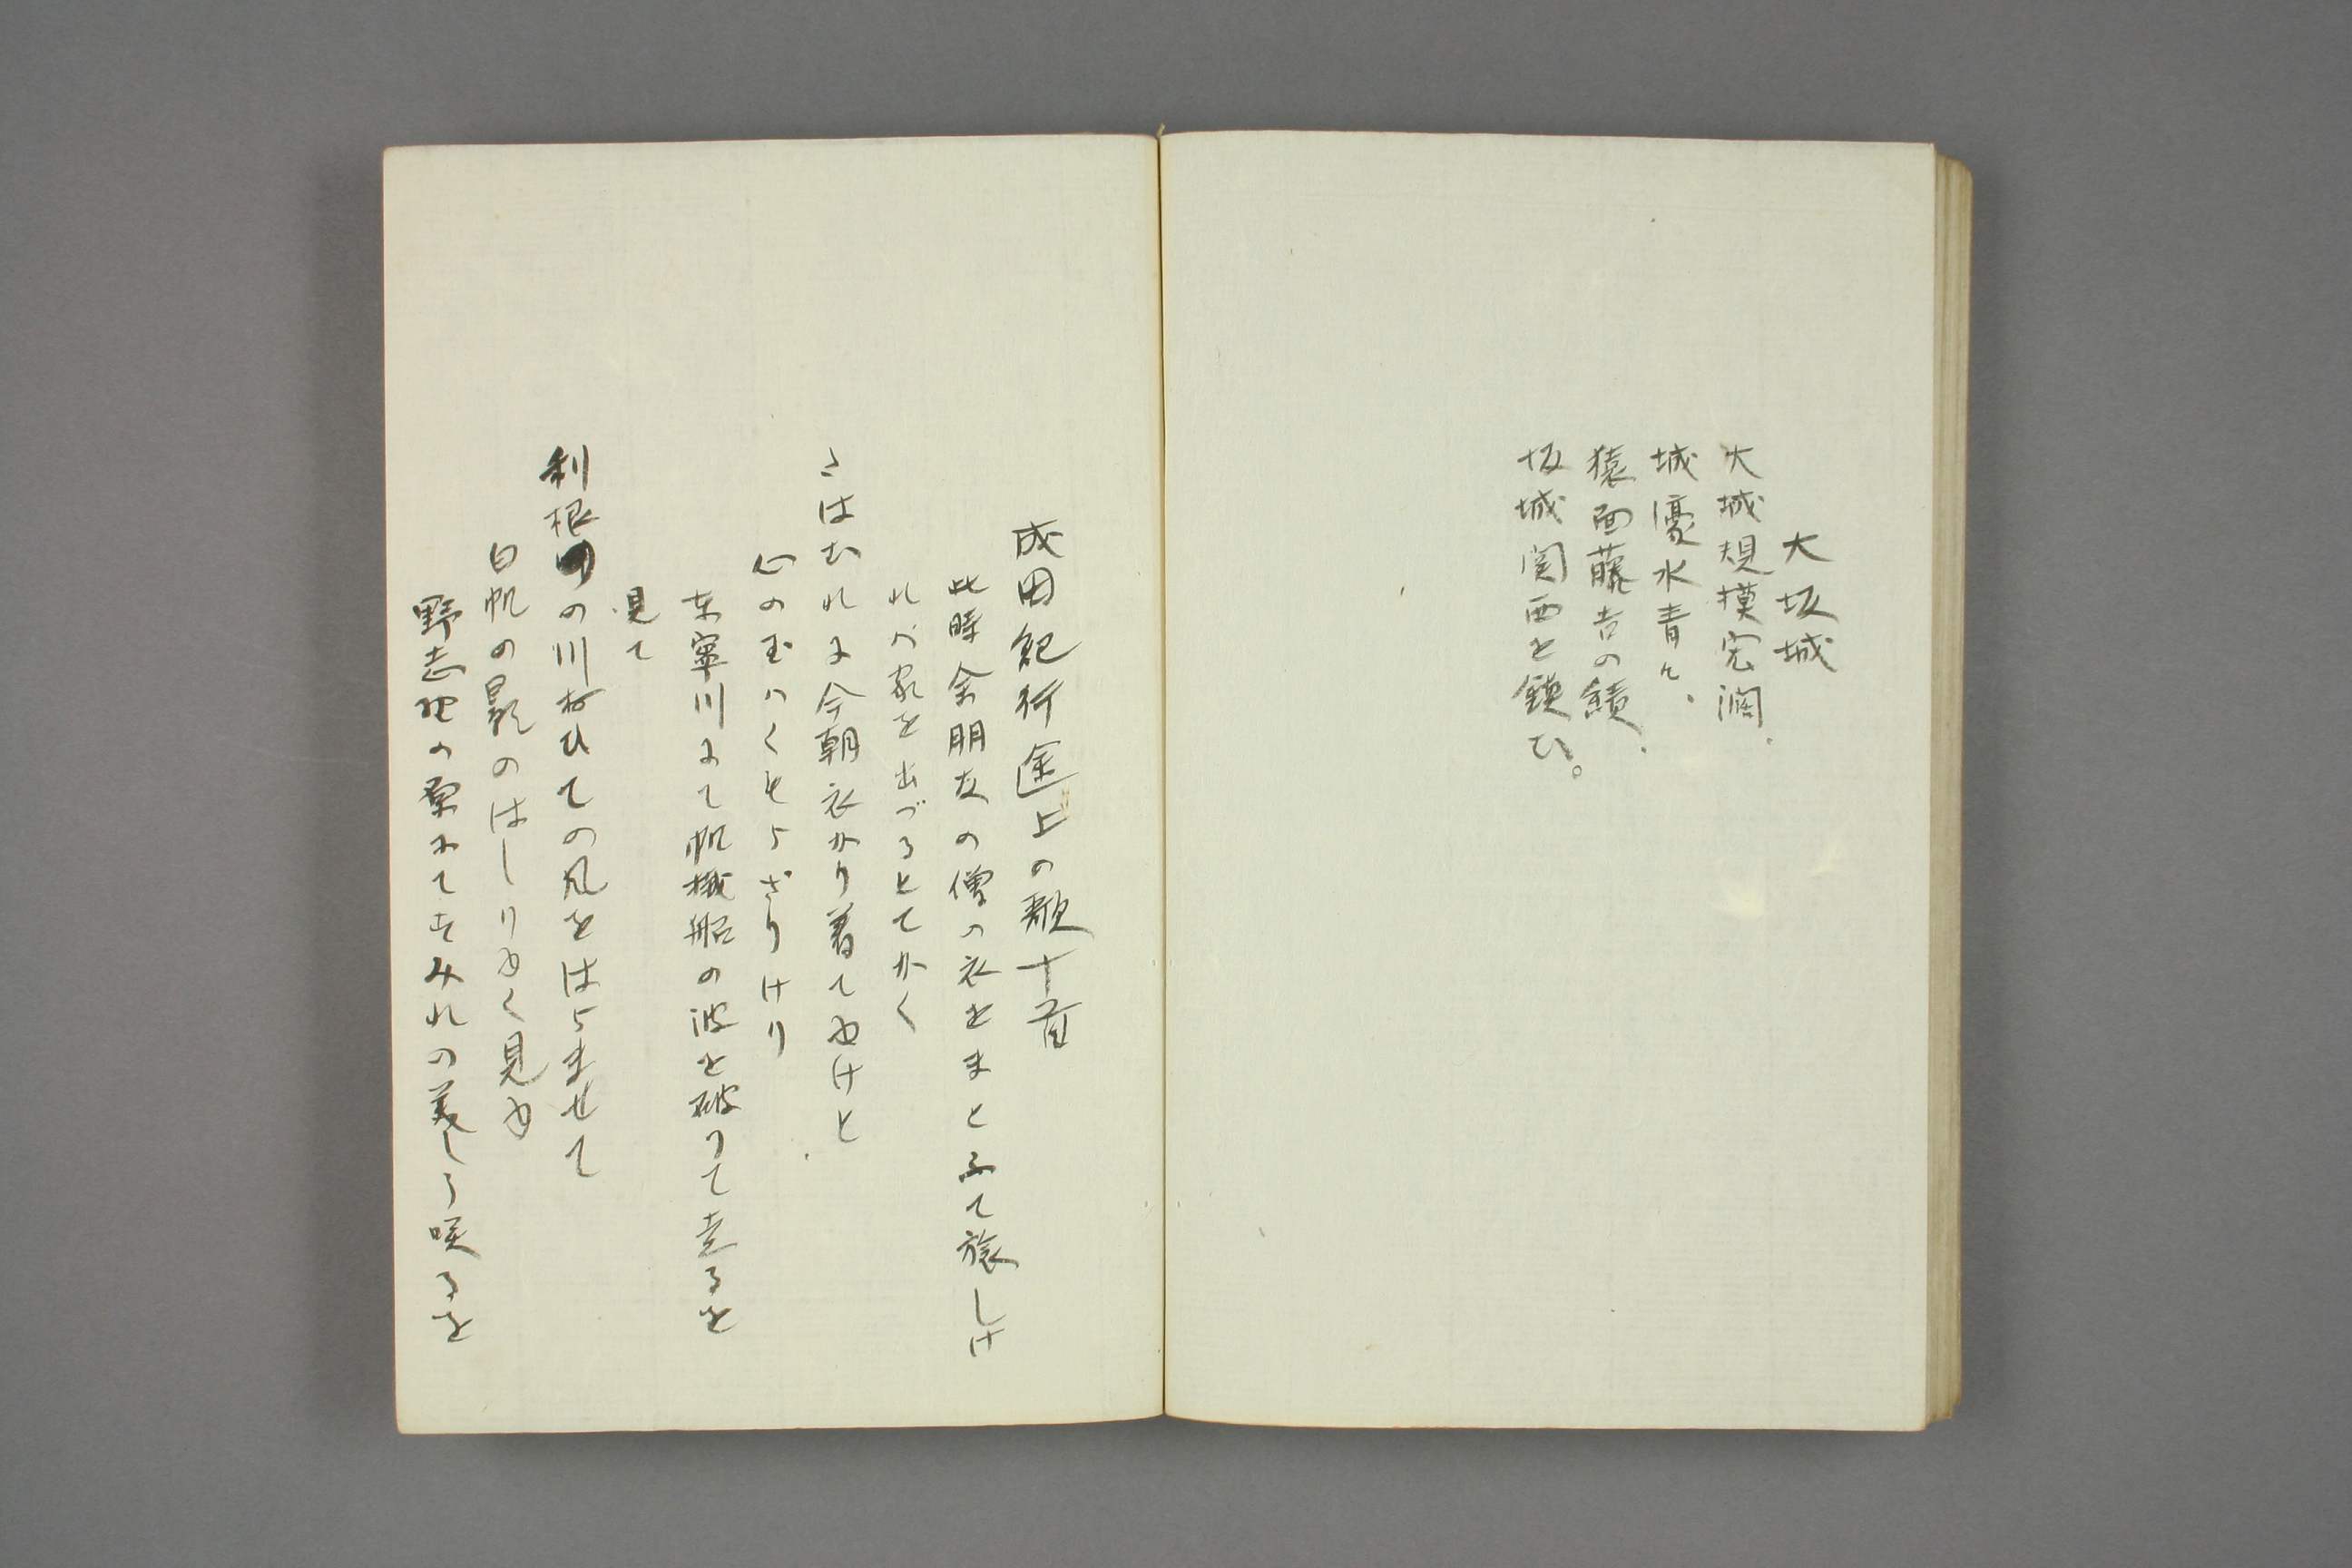 大坂城
大城規模宏濶.
城濠水青々.
猿面藤吉の績.
坂城関西を鎮ひ。
成田紀行途上の歌十首
此時余朋友の僧の衣をまとふて旅しけ
れバ家を出づるとてかく
たはむれに今朝衣かり着てゆけと
心の玉ハくもらざりけり
東寧川にて帆檝船の波を破りて走るを
見て
利根の川おひての風をはらませて
白帆の影のはしりゆく見ゆ
野志地の原にてすみれの美しう咲るを